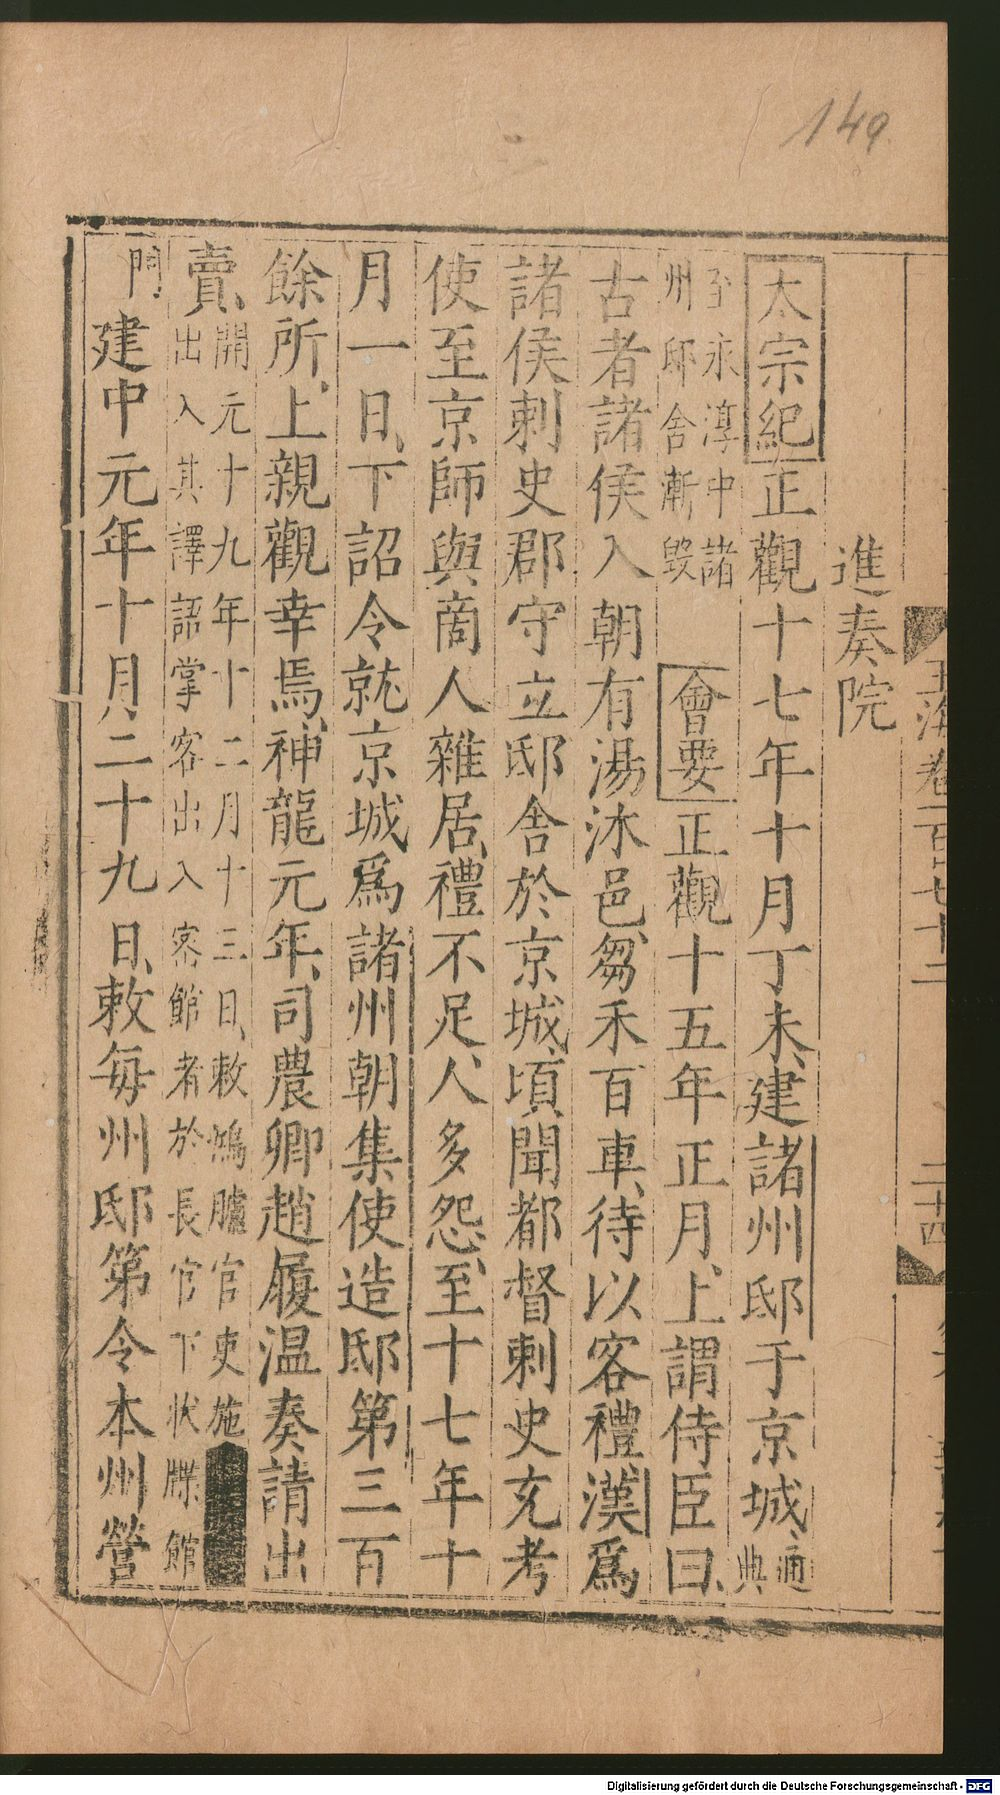 149
玉海卷一百七十二
二十四
進奏院
太宗紀正觀十七年十月丁未建諸州邸于京城通典
至永淳中諸州邸舍漸毀會要正觀十五年正月上謂侍臣曰
古者諸侯入朝有湯沐邑芻禾百車待以客禮漢爲
諸侯刺史郡守立邸舍於京城頃聞都督刺史充考
使至京師與商人雜居禮不足人多怨至十七年十
月一日下詔令就京城爲諸州朝集使造邸第三百
餘所上親觀幸焉神龍元年司農卿趙履溫奏請出
賣開元十九年十二月十三日敕鴻臚官吏施出入其譯語掌客出入客館者於長官下狀牒館
門建中元年十月二十九日敕每州邸第令本州營
Digitalisierung gefördert durch die Deutsche Forschungsgemeinschaft - DFG